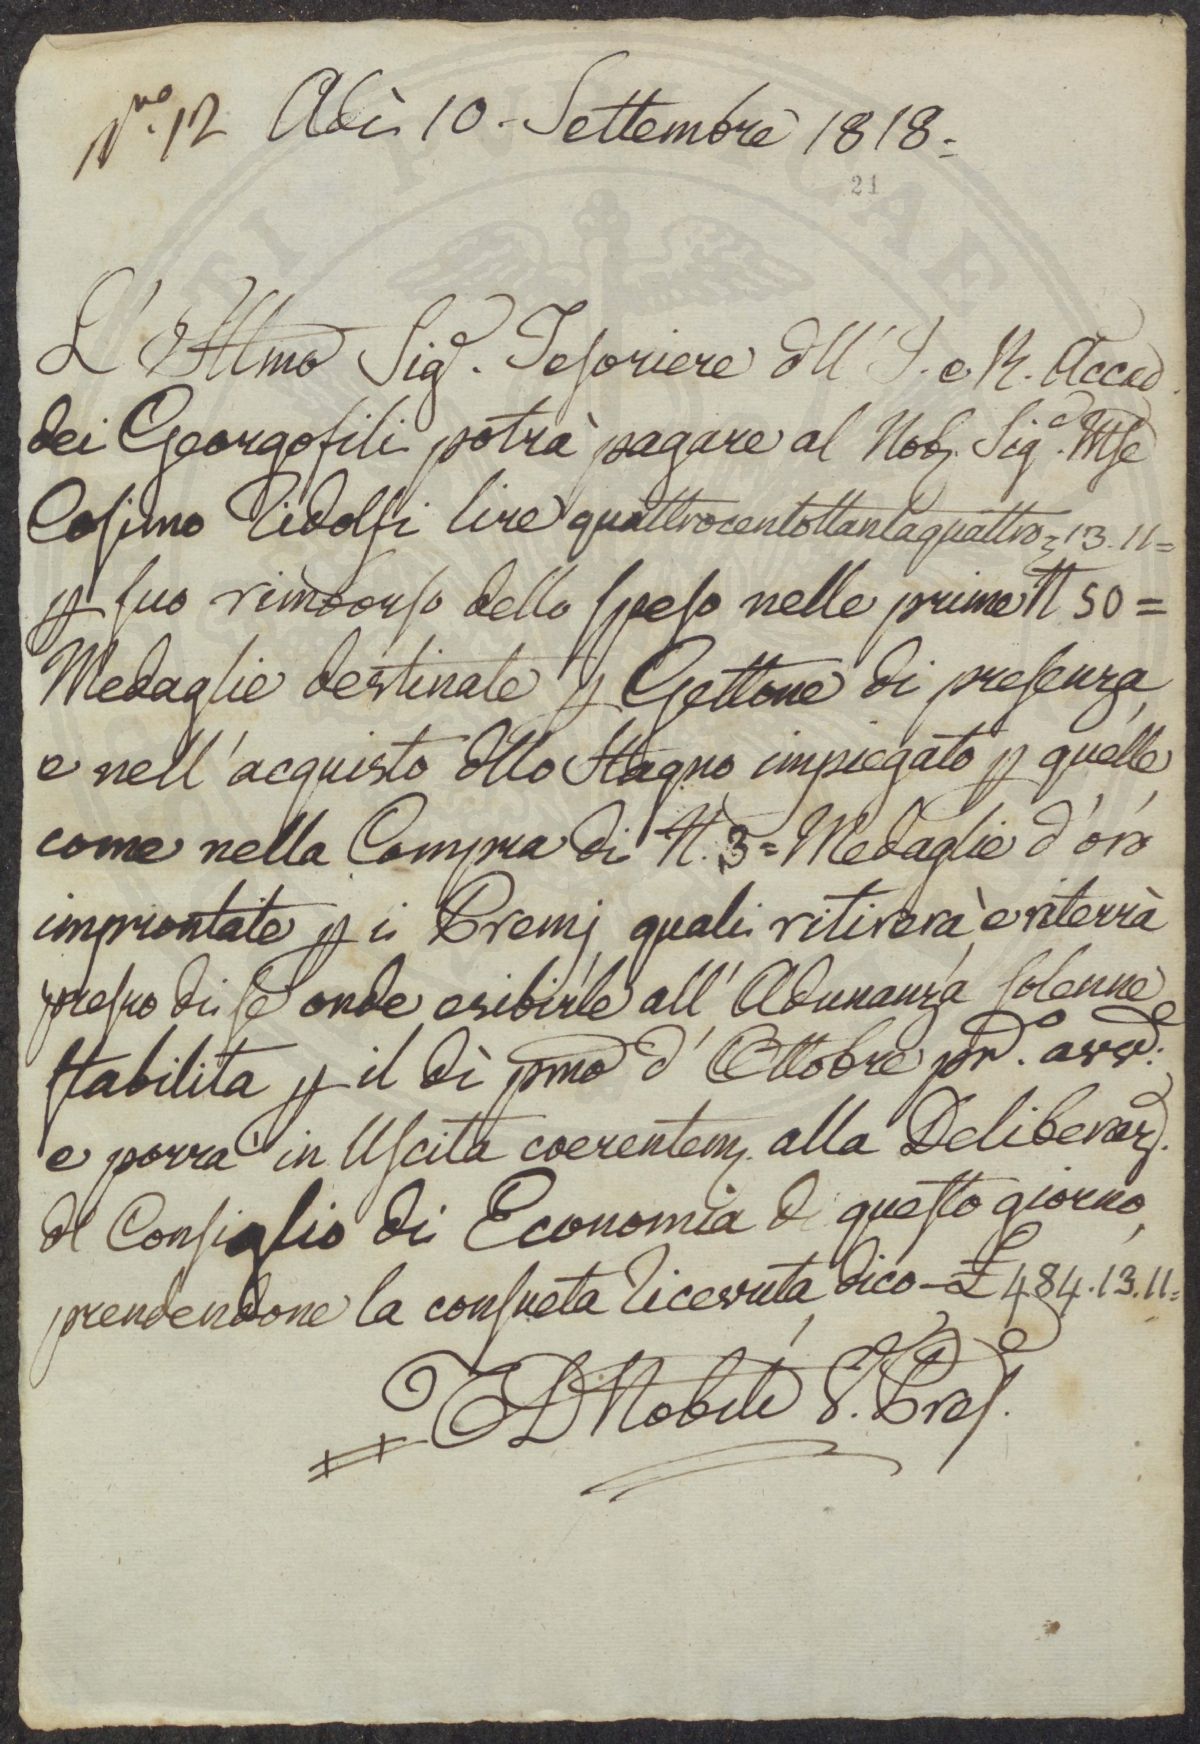 N.ro 12 Adì 10 - Settembre 1818 =
21
L'Illmo Sig.e Tesoriere dll' I. e R. Accad.
dei Georgofili potrà pagare al Nob. Sig.e Mse
Cosimo Ridolfi lire quattrocentottantaquattro = 13.11 =
p suo rimborso dello speso nelle prime N 50 =
Medaglie destinate p Gettone di presenza,
e nell'acquisto dllo Stagno impiegato p quelle,
come nella Compra di N. 3 = Medaglie d'oro
improntate p i Premj quali ritirerà, e riterrà
presso di se onde esibirle all'Adunanza solenne
stabilita p il dì pmo d'Ottobre pr.o avv.e:
e porrà in Uscita coerentem. alla Deliberaz.
dl Consiglio di Economia di questo giorno,
prendendone la consueta ricevuta, dico - £ 484.13.11 =
Nobili V. Pres.